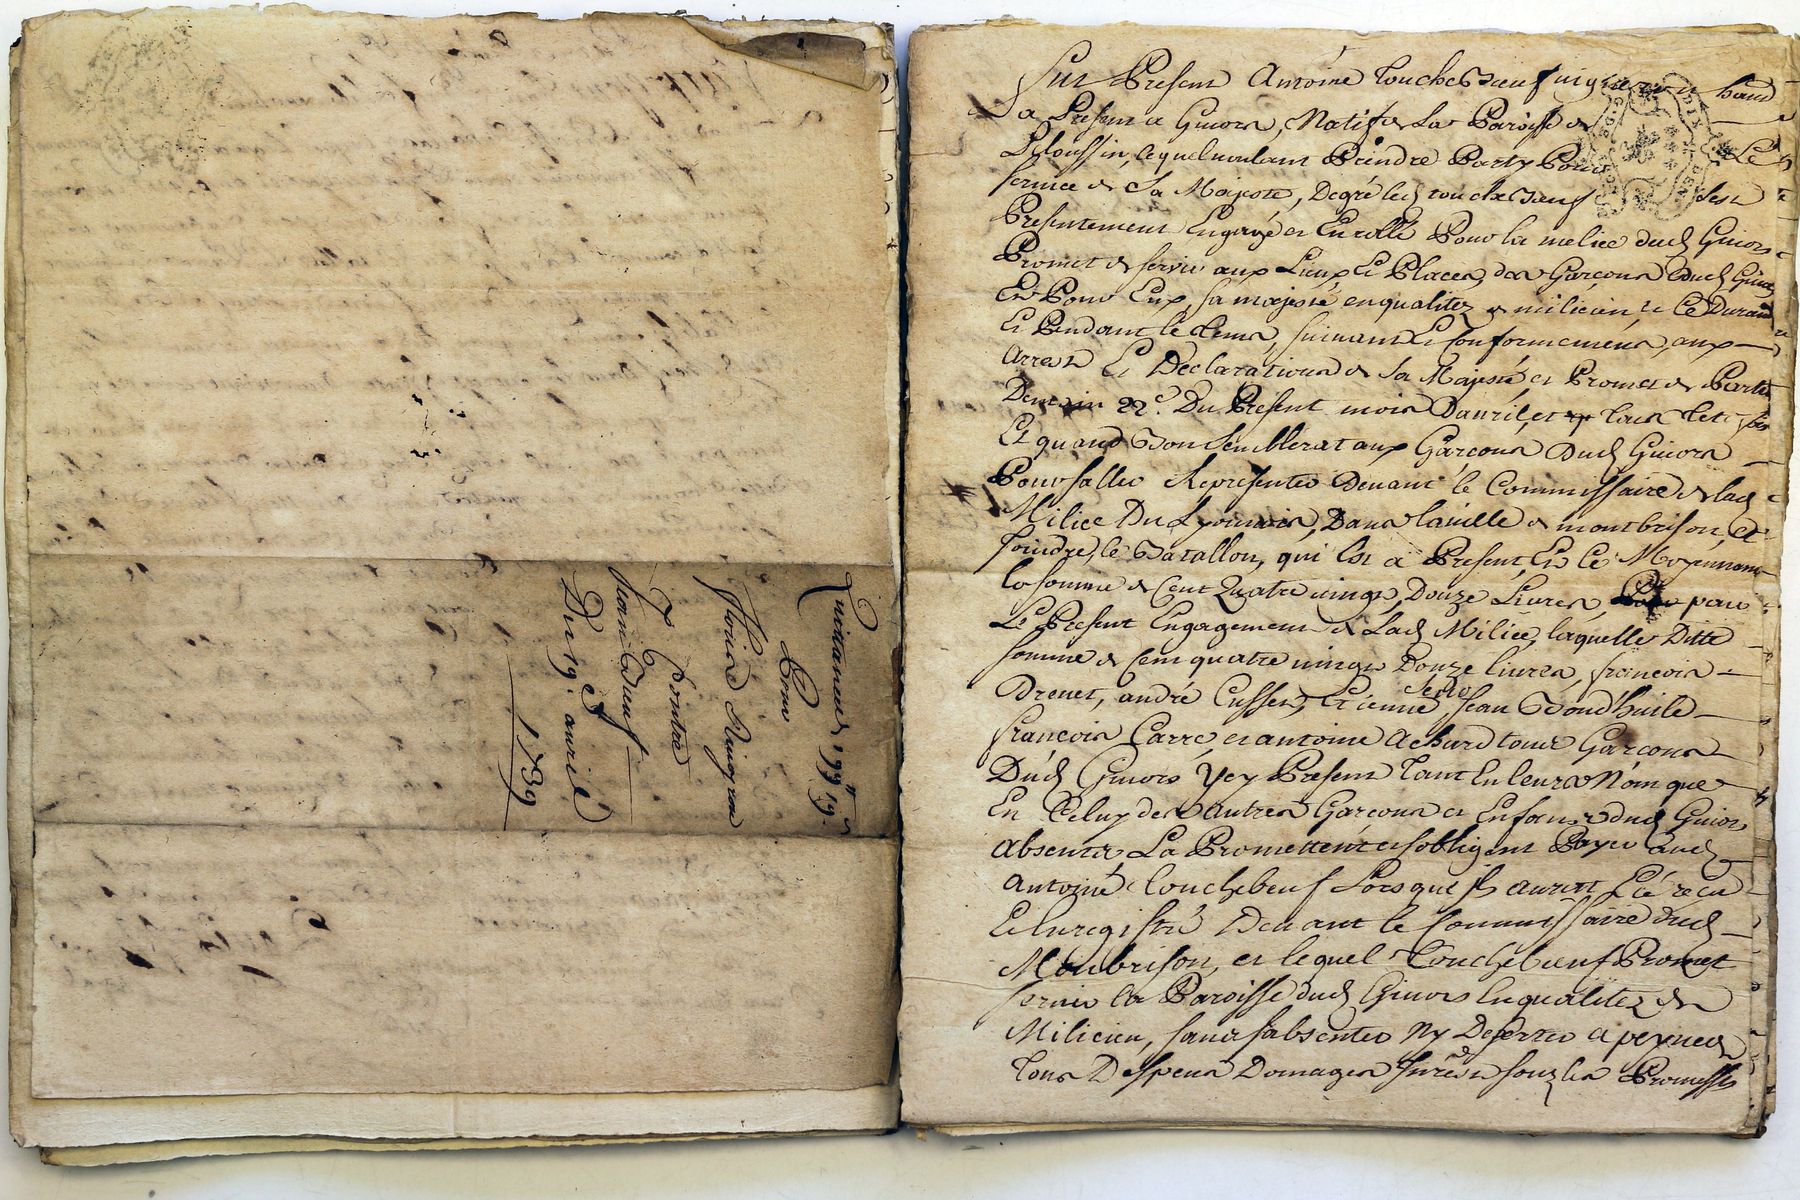 Quittance 199ᵗᵗ 19ˢ
Pour
Contre
Jean Dueuf
Du 19. avril
1739
fut Present Antoine Touchebœuf
a Present a Givors, Natif de La Paroisse de
Pelloussin, lequel voulant Prendre Party Pour Le
service de Sa Majesté, De gré led touchebœuf sest
Presentement Engagé et Enrollé Pour la melice dud Givors
Promet de servir aux Lieux Et Places des Garçons Dud Givors
Et Pour Eux, sa majesté en qualitez de milicien et ce Durant
Et Pendant le tems, suivant Et Conformement aux
Arrest Et Déclarations de Sa Majesté et Promet de Partir
Demain 22ᵉ. Du Present mois Davril, et
Et quand Bon semblerat aux Garçons Dud Givors
Pour saller Representer Devant le Commissaire de lad
Milice Du Lyonnois, Dans la ville de montbrison, et
Joindre, le Batallon, qui Est a Present, Et Ce Moyennant
la somme de Cent Quatre vingt Douze Livres, pour
Le Present Engagement de Lad Milice, laquelle Ditte
somme de Cent quatre vingt Douze livres, françois
Drevet, andré Cussett, Etienne Jean Bondhuile
françois Carre et antoine achard tous Garçons
Dud Givors Ycy Present tant En leurs Nom que
En Celuy des Autres Garçons et Enfans dud Givors
Absents, La Promettent et sobligent Payer aud
Antoine Touchebeuf Lors quil auratt Eté recu
Et Enregistré Devant le Commissaire dud
Monbrison, et lequel Touchebœuf Promet
servir la Paroisse dud Givors En qualitez de
Milicien, sans sabsenter Ny Deserter a peynes de
Tous Despens Domages Interest souz les Promesses